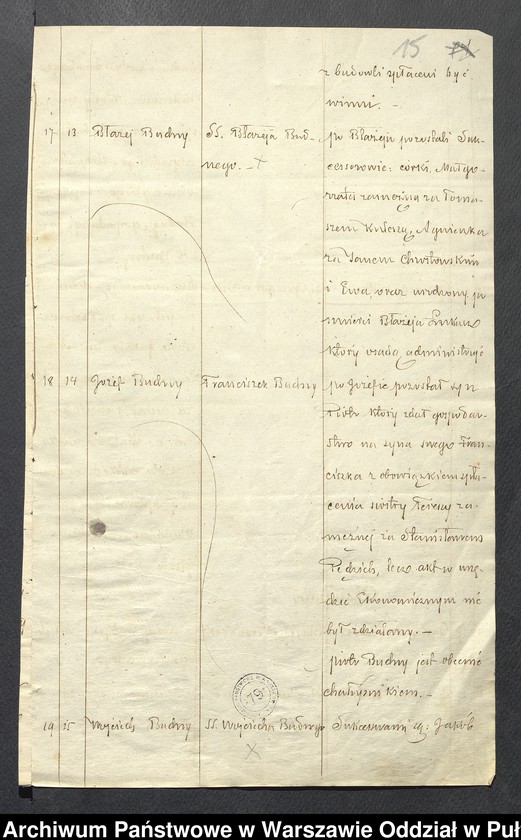 15
z budowli spłaceni być
winni. –
17 13 Błażej Budny SS. Błażeja Bud- po Błażeju pozostali Suk-
nego. – x cessorowie: córki, Małgo-
rzata zamężna za Toma-
szem Kuleszą, Agnieszka
za Janem Chwiłowskim
i Ewa, oraz urodzony po
śmierci Błażeja Łukasz
który osadą administruje
18 14 Jozef Budny Franciszek Budny po Jozefie pozostał syn
Piotr który zdał gospodar-
stwo na syna swego Fran-
ciszka z obowiązkiem spła-
cenia siostry Teresy za-
mężnej za Stanisławem
lecz akt w urzę-
dzie Ekonomicznym nie
był zdziałany. –
piotr Budny jest obecnie
chałupnikiem. –
19 15 Wojciech Budny SS. Wojciecha Budnego Sukcesorami są: Jakób
x
Archiwum Państwowe w Warszawie Oddział w Puł